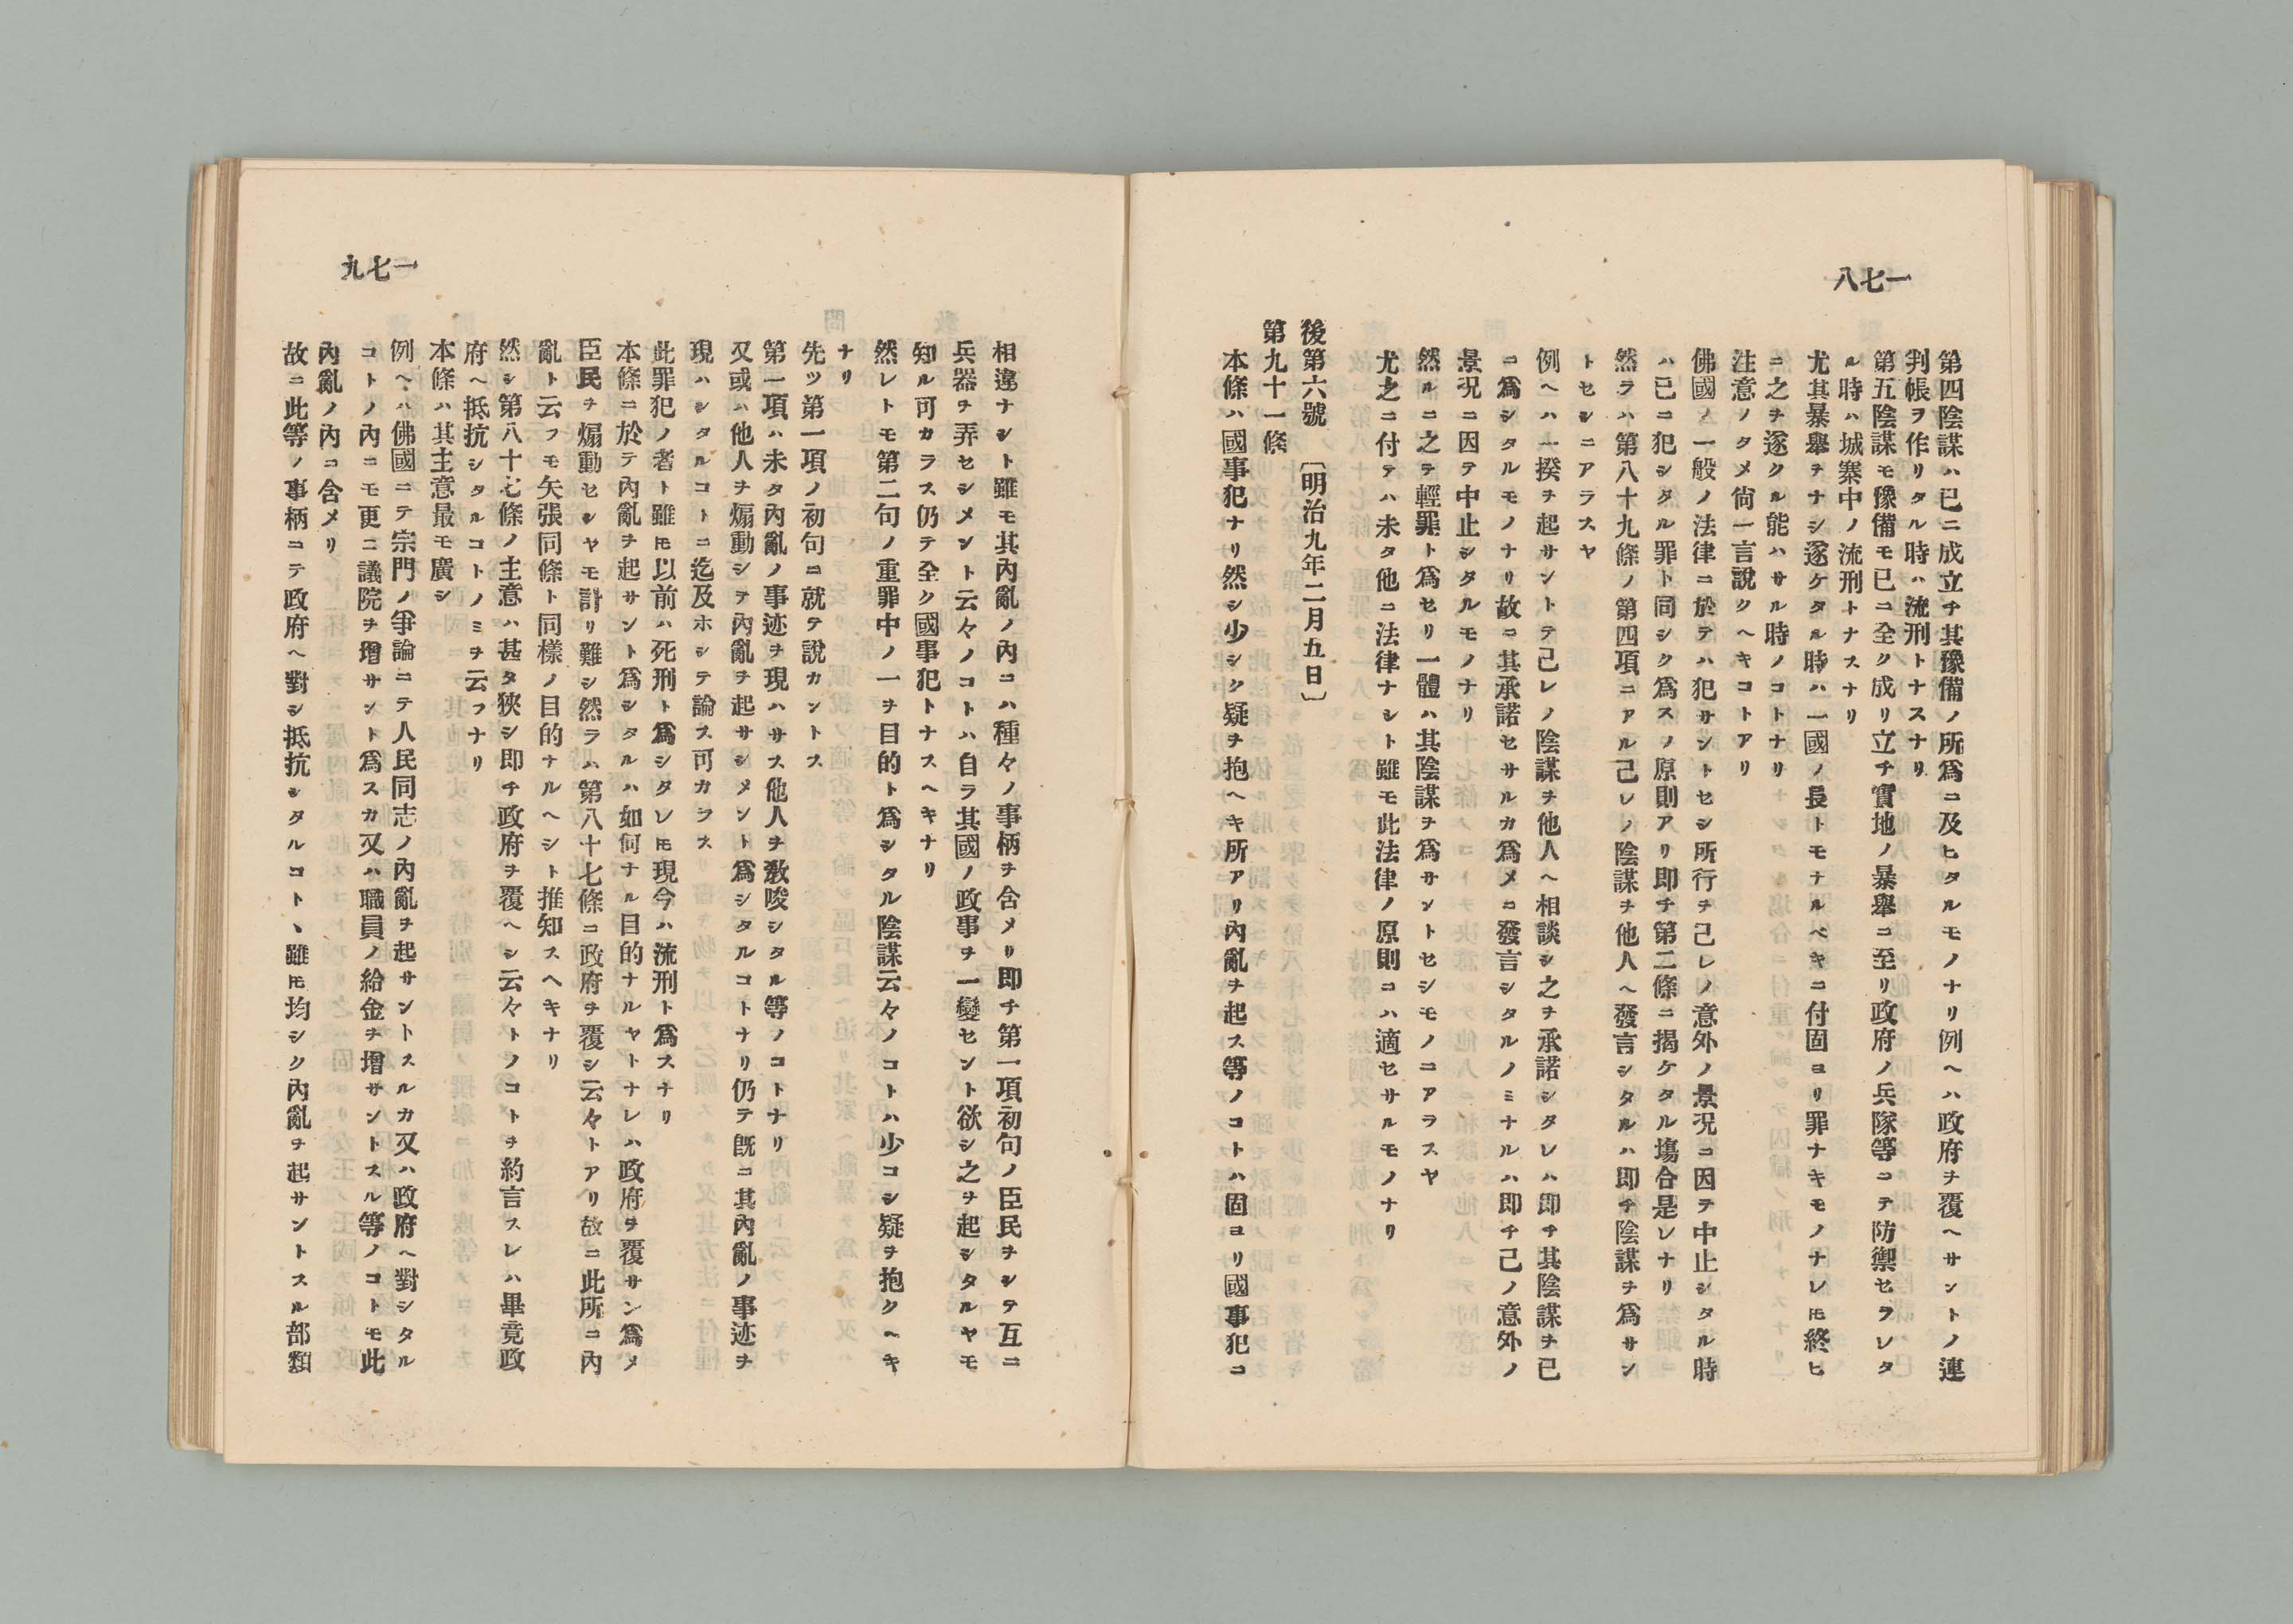 一七八
第四陰謀ハ已ニ成立チ其豫備ノ所爲ニ及ヒタルモノナリ例ヘハ政府ヲ覆ヘサントノ連
判帳ヲ作リタル時ハ流刑トナスナリ
第五陰謀モ豫備モ已ニ全ク成リ立チ實地ノ暴擧ニ至リ政府ノ兵隊等ニテ防禦セラレタ
ル時ハ城寨中ノ流刑トナスナリ
尤其暴擧ヲナシ遂ケタル時ハ一國ノ長トモナルベキニ付固ヨリ罪ナキモノナレ𪜈終ヒ
ニ之ヲ遂クル能ハサル時ノコトナリ
注意ノタメ尙一言說クヘキコトアリ
佛國ノ一般ノ法律ニ於テハ犯サントセシ所行ヲ己レノ意外ノ景況ニ因テ中止シタル時
ハ已ニ犯シタル罪ト同シク爲スノ原則アリ即チ第二條ニ揭ケタル塲合是レナリ
然ラハ第八十九條ノ第四項ニアル己レノ陰謀ヲ他人ヘ發言シタルハ即チ陰謀ヲ爲サン
トセシニアラスヤ
例ヘハ一揆ヲ起サントテ己レノ陰謀ヲ他人ヘ相談シ之ヲ承諾シタレハ即チ其陰謀ヲ已
ニ爲シタルモノナリ故ニ其承諾セサルカ爲メニ發言シタルノミナルハ即チ己ノ意外ノ
景況ニ因テ中止シタルモノナリ
然ルニ之テ輕罪ト爲セリ一體ハ其陰謀ヲ爲サントセシモノニアラスヤ
尤之ニ付テハ未タ他ニ法律ナシト雖モ此法律ノ原則ニハ適セサルモノナリ
後第六號 〔明治九年二月五日〕
第九十一條
本條ハ國事犯ナリ然シ少シク疑ヲ抱ヘキ所アリ內亂ヲ起ス等ノコトハ固ヨリ國事犯ニ
一七九
相違ナシト雖モ其內亂ノ內ニハ種々ノ事柄ヲ含メリ即チ第一項初句ノ臣民ヲシテ互ニ
兵器ヲ弄セシメント云々ノコトハ自ラ其國ノ政事ヲ一變セント欲シ之ヲ起シタルヤモ
知ル可カラス仍テ全ク國事犯トナスヘキナリ
然レトモ第二句ノ重罪中ノ一ヲ目的ト爲シタル陰謀云々ノコトハ少コシ疑ヲ抱クヘキ
ナリ
先ツ第一項ノ初句ニ就テ說カントス
第一項ハ未タ內亂ノ事迹ヲ現ハサス他人ヲ敎唆シタル等ノコトナリ
又或ハ他人ヲ煽動シテ內亂ヲ起サシメント爲シタルコトナリ仍テ旣ニ其內亂ノ事迹ヲ
現ハシタルコトニ迄及ホシテ論ス可カラス
此罪犯ノ者ト雖𪜈以前ハ死刑ト爲シタレ𪜈現今ハ流刑ト爲スナリ
本條ニ於テ內亂ヲ起サント爲シタルハ如何ナル目的ナルヤトナレハ政府ヲ覆サン爲メ
臣民ヲ煽動セシヤモ計リ難シ然ラハ第八十七條ニ政府ヲ覆シ云々トアリ故ニ此所ニ內
亂ト云フモ矢張同條ト同樣ノ目的ナルヘシト推知スヘキナリ
然シ第八十七條ノ主意ハ甚タ狹シ即チ政府ヲ覆ヘシ云々トノコトヲ約言スレハ畢竟政
府ヘ抵抗シタルコトノミヲ云フナリ
本條ハ其主意最モ廣シ
例ヘハ佛國ニテ宗門ノ爭論ニテ人民同志ノ內亂ヲ起サントスルカ又ハ政府ヘ對シタル
コトノ內ニモ更ニ議院ヲ增サント爲スカ又ハ職員ノ給金ヲ增サントスル等ノコトモ此
內亂ノ內ニ含メリ
故ニ此等ノ事柄ニテ政府ヘ對シ抵抗シタルコトヽ雖𪜈均シク內亂ヲ起サントスル部類